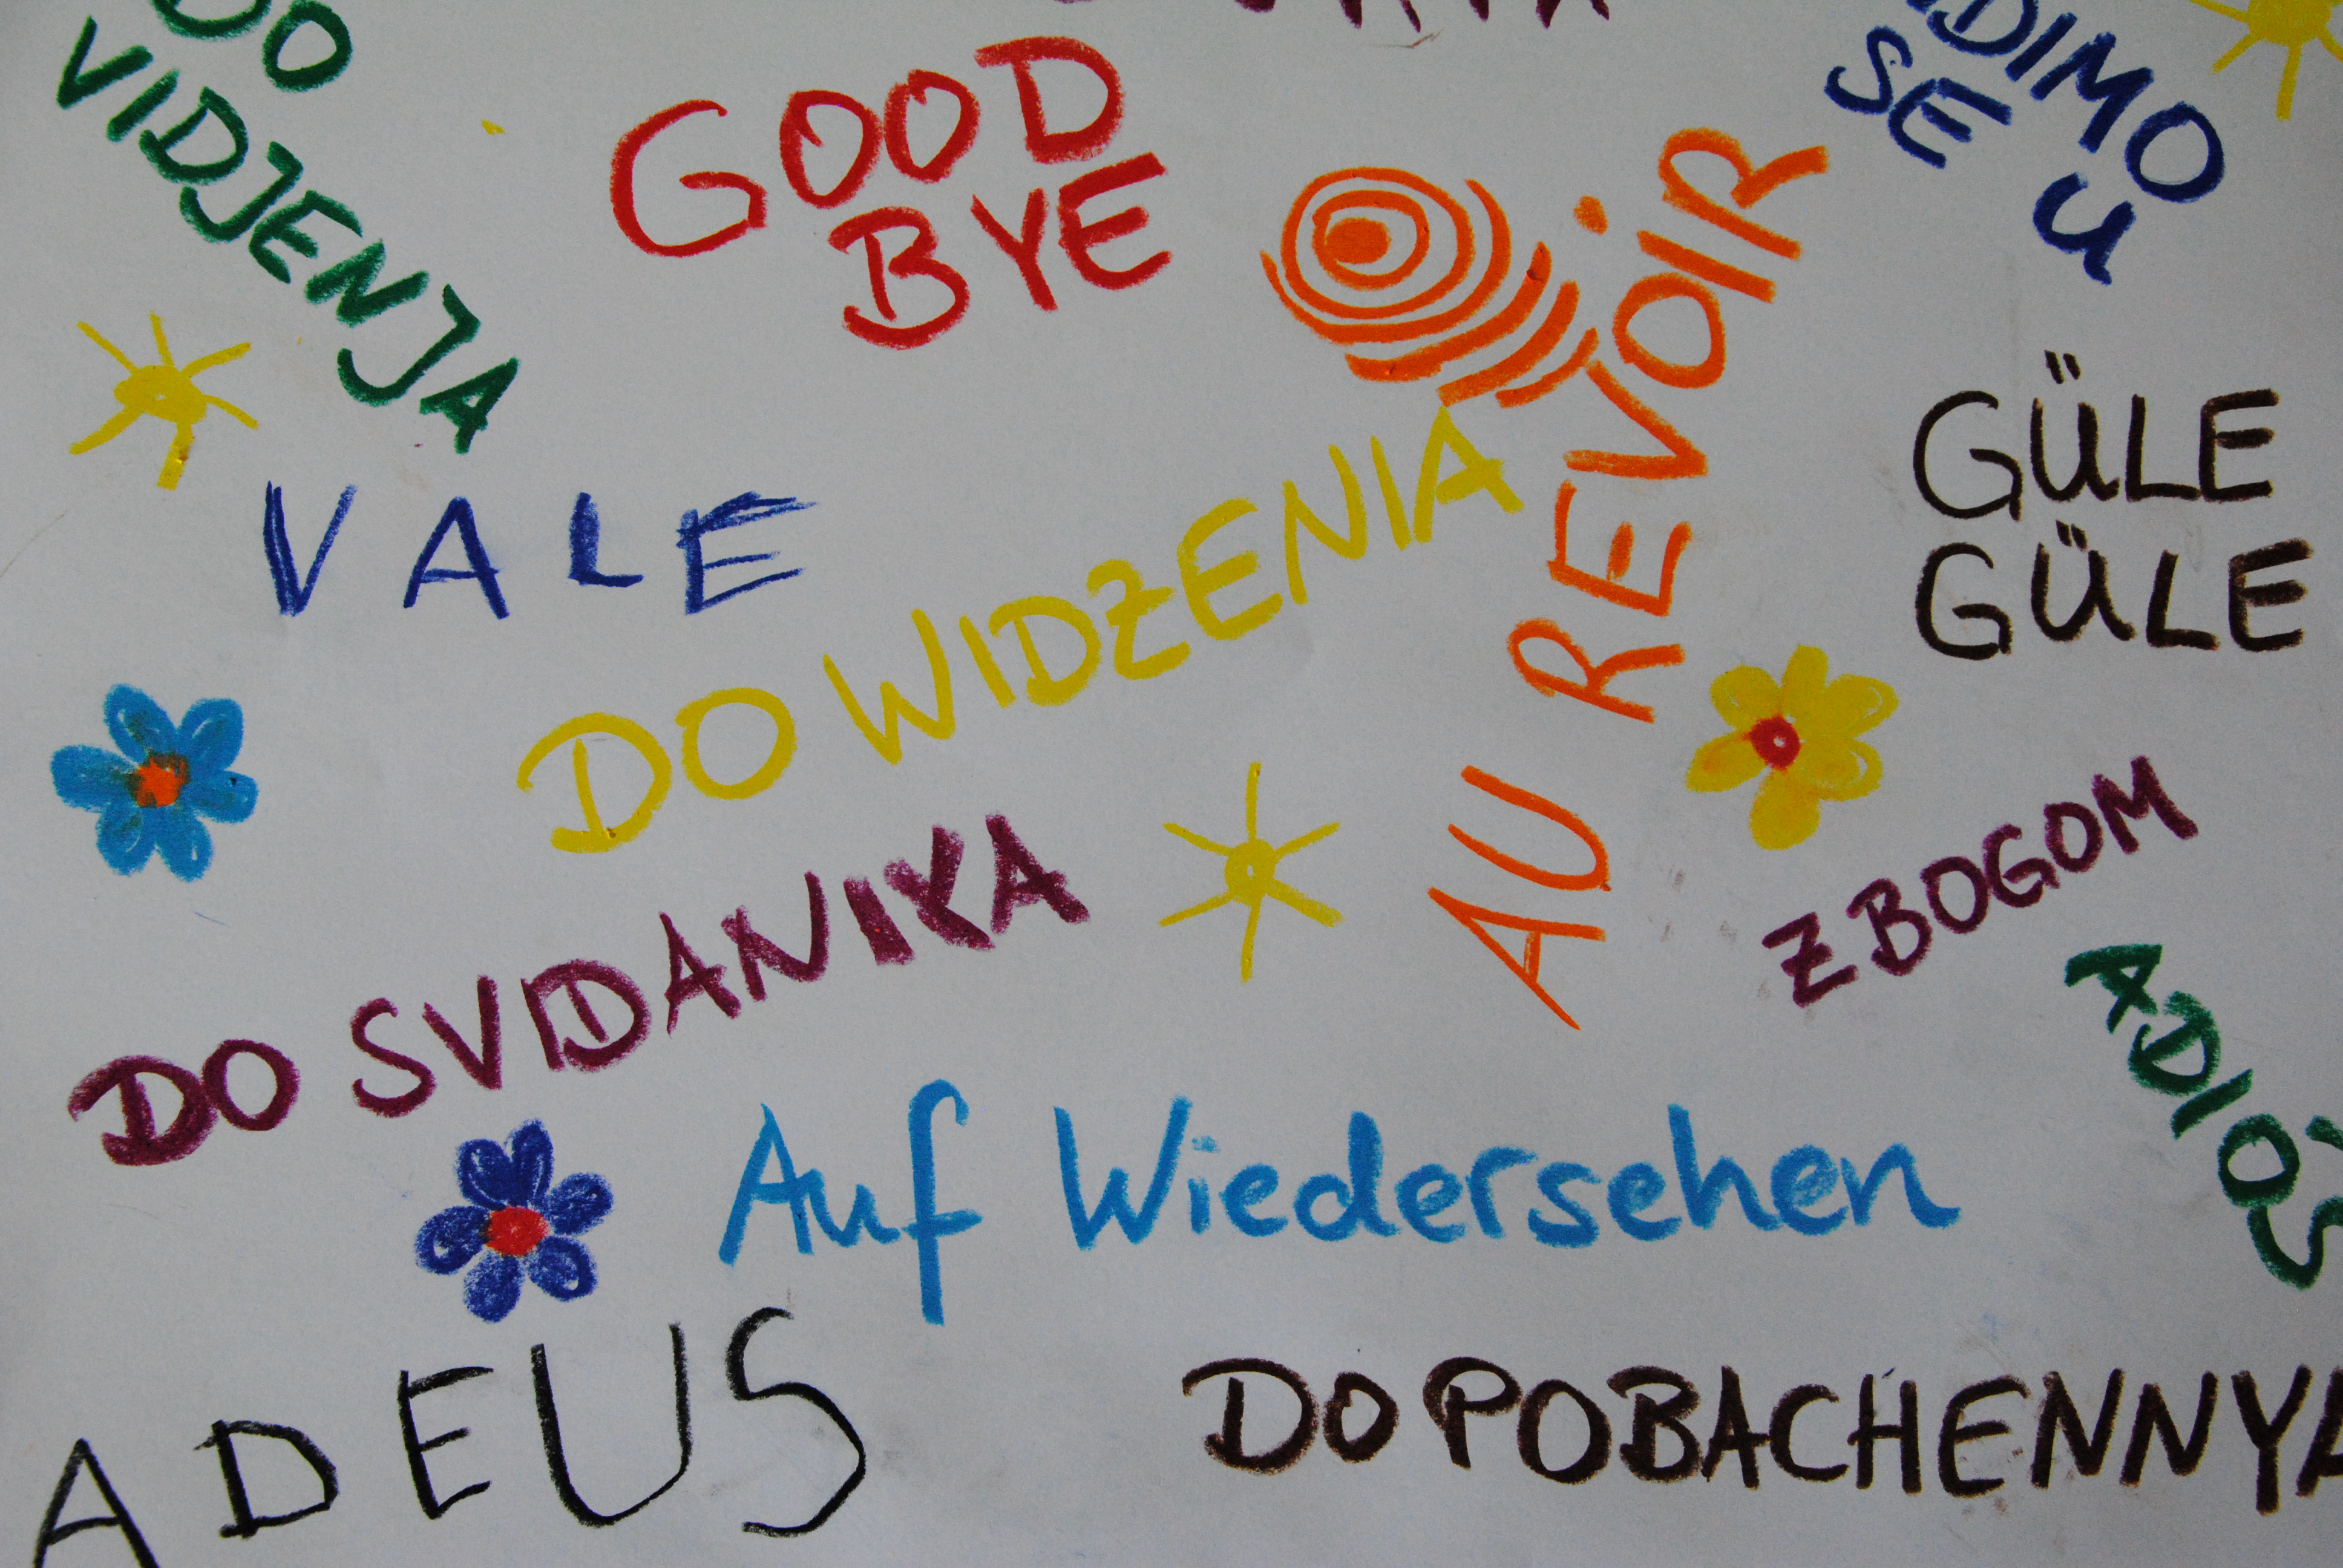 DO
VIDJENJA
GOOD
BYE
SE U
AU REVOIR
GÜLE
GÜLE
VALE
DO WIDZENIA
ZBOGOM
ADIOS
DO SVIDANIYA
Auf Wiedersehen
ADEUS
DO POBACHENNYA